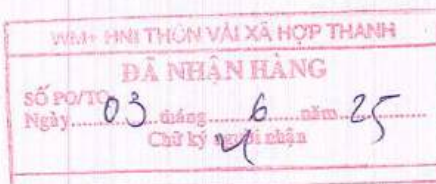 WM+ HNI THÔN VẢI XÃ HỢP THANH
ĐÃ NHẬN HÀNG
SỐ PO/TO
Ngày 03 tháng 6 năm 25
Chữ ký người nhận